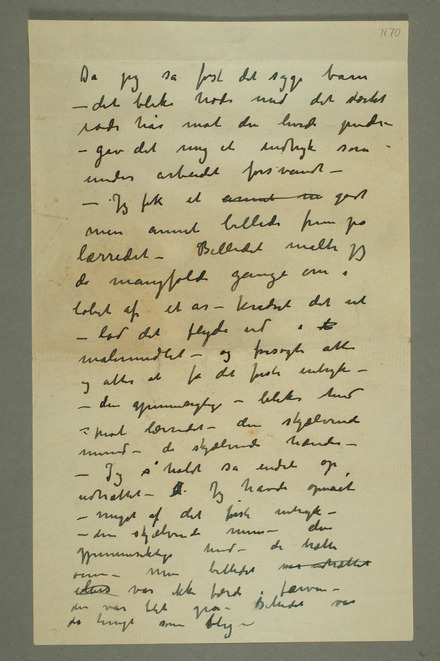 N 70
Da jeg sa først det syge barn
– det bleke hode med det sterke
røde hår mot den hvide puden
– gav det mig et indtryk som
under arbeidet forsvandt –
– Jeg fik et godt
men annet billede frem på
lærredet – Billedet malte jeg
de mangfoldige gange om i
løbet af et år – kradset det ut
– lod det flyde ud i
malemidlet – og forsøgte atter
og atter at få det første indtryk –
– den gjennemsigtige – bleke hud
mot lærredet – den skjælvende
mund – de skjælvende hænder –
– Jeg holdt så endel op
udmattet – Jeg havde opnået
– meget af det første indtryk –
– den skjælvende mund – den
gjennemsiktige hud – de trætte
øine – men billedet
var ikke færdig i farven –
den var blegt grå – Billedet var
da tungt som bly –